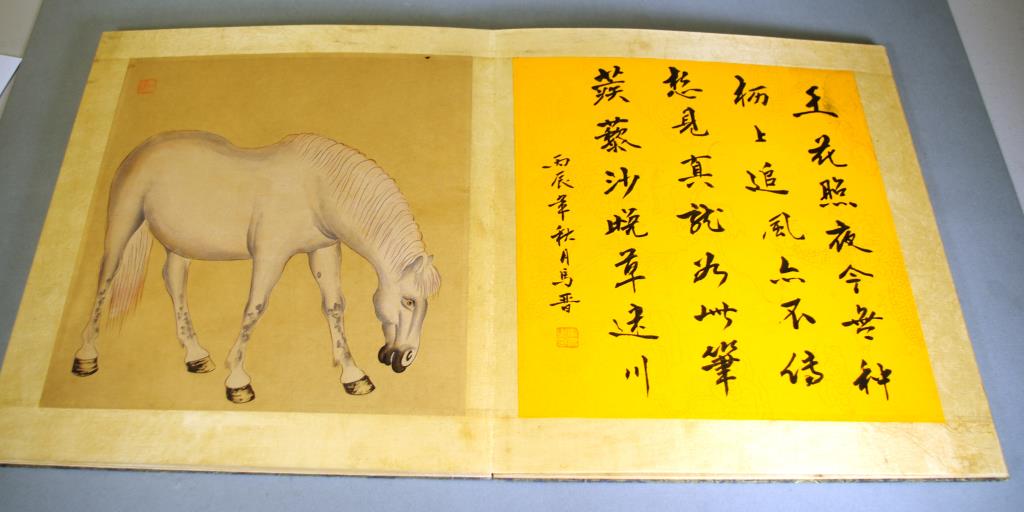 玉花照夜今無种
枥上追風亦不傳
想見真龍如此筆
蒺藜沙晚草迷川
丙辰年秋月馬晋